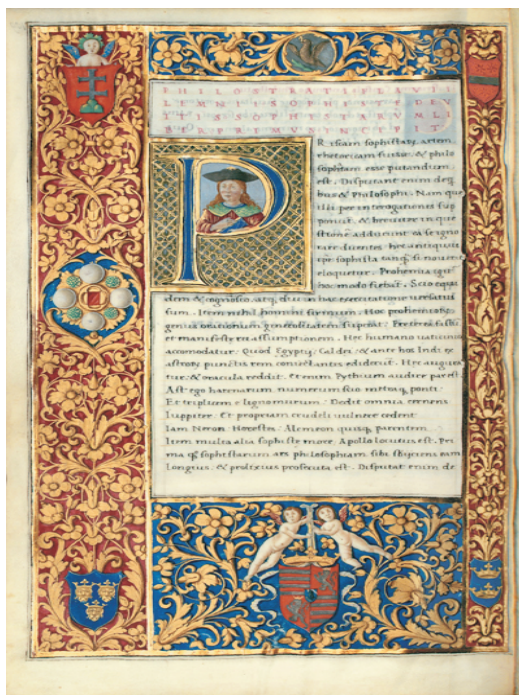 PHILOSTRATI FLAVII
LIMNII SOPHISTE DE V
ITIIS SOPHISTARVM LI
BER PRIMVS INCIPIT
P
Riscam sophistarū artem
rhetoricam fuisse & philo
sophicam esse putandum
est. Disputant enim de
bus & Philosophi. Nam que
illi per interogationes sup
ponūt & breuiter in que
stione adducunt ea se igno
rare dicentes. hec antiquus
ipse sophista tanq̄ si nouerit
eloquetur. Prohemia igitur
hoc modo faciat. Scio equi
dem & cognosco. atq̨ diu in hac exercitatione uersatus
sum. Item nihil homini firmum. Hoc prohemiorum
genus orationum generositatem suscitat.
et manifeste rei assumptionem. Hec humano uaticinio
accomodatur. Quod Egyptii Caldei & ante hos Indi ex
astrorū punctis rem coniectantes ediderūt. Hec augura
tur & oracula reddit. Etenim Pythium audire par est.
Ast ego harenarum numerum scio metasq̨ ponti.
Et triplicem e lignomurum. Dedit omnia cernens
Iuppiter. Et propriam crudeli uulnere cedent
Iam Neron. Horestes. Alcmeon quisq̨ parentem.
Item multa alia sophiste more Apollo locutus est. Pri
ma q̨ sophistarum ars philosophiam sibi subiiciens eam
longius & prolixius prosecuta est. Disputat enim de